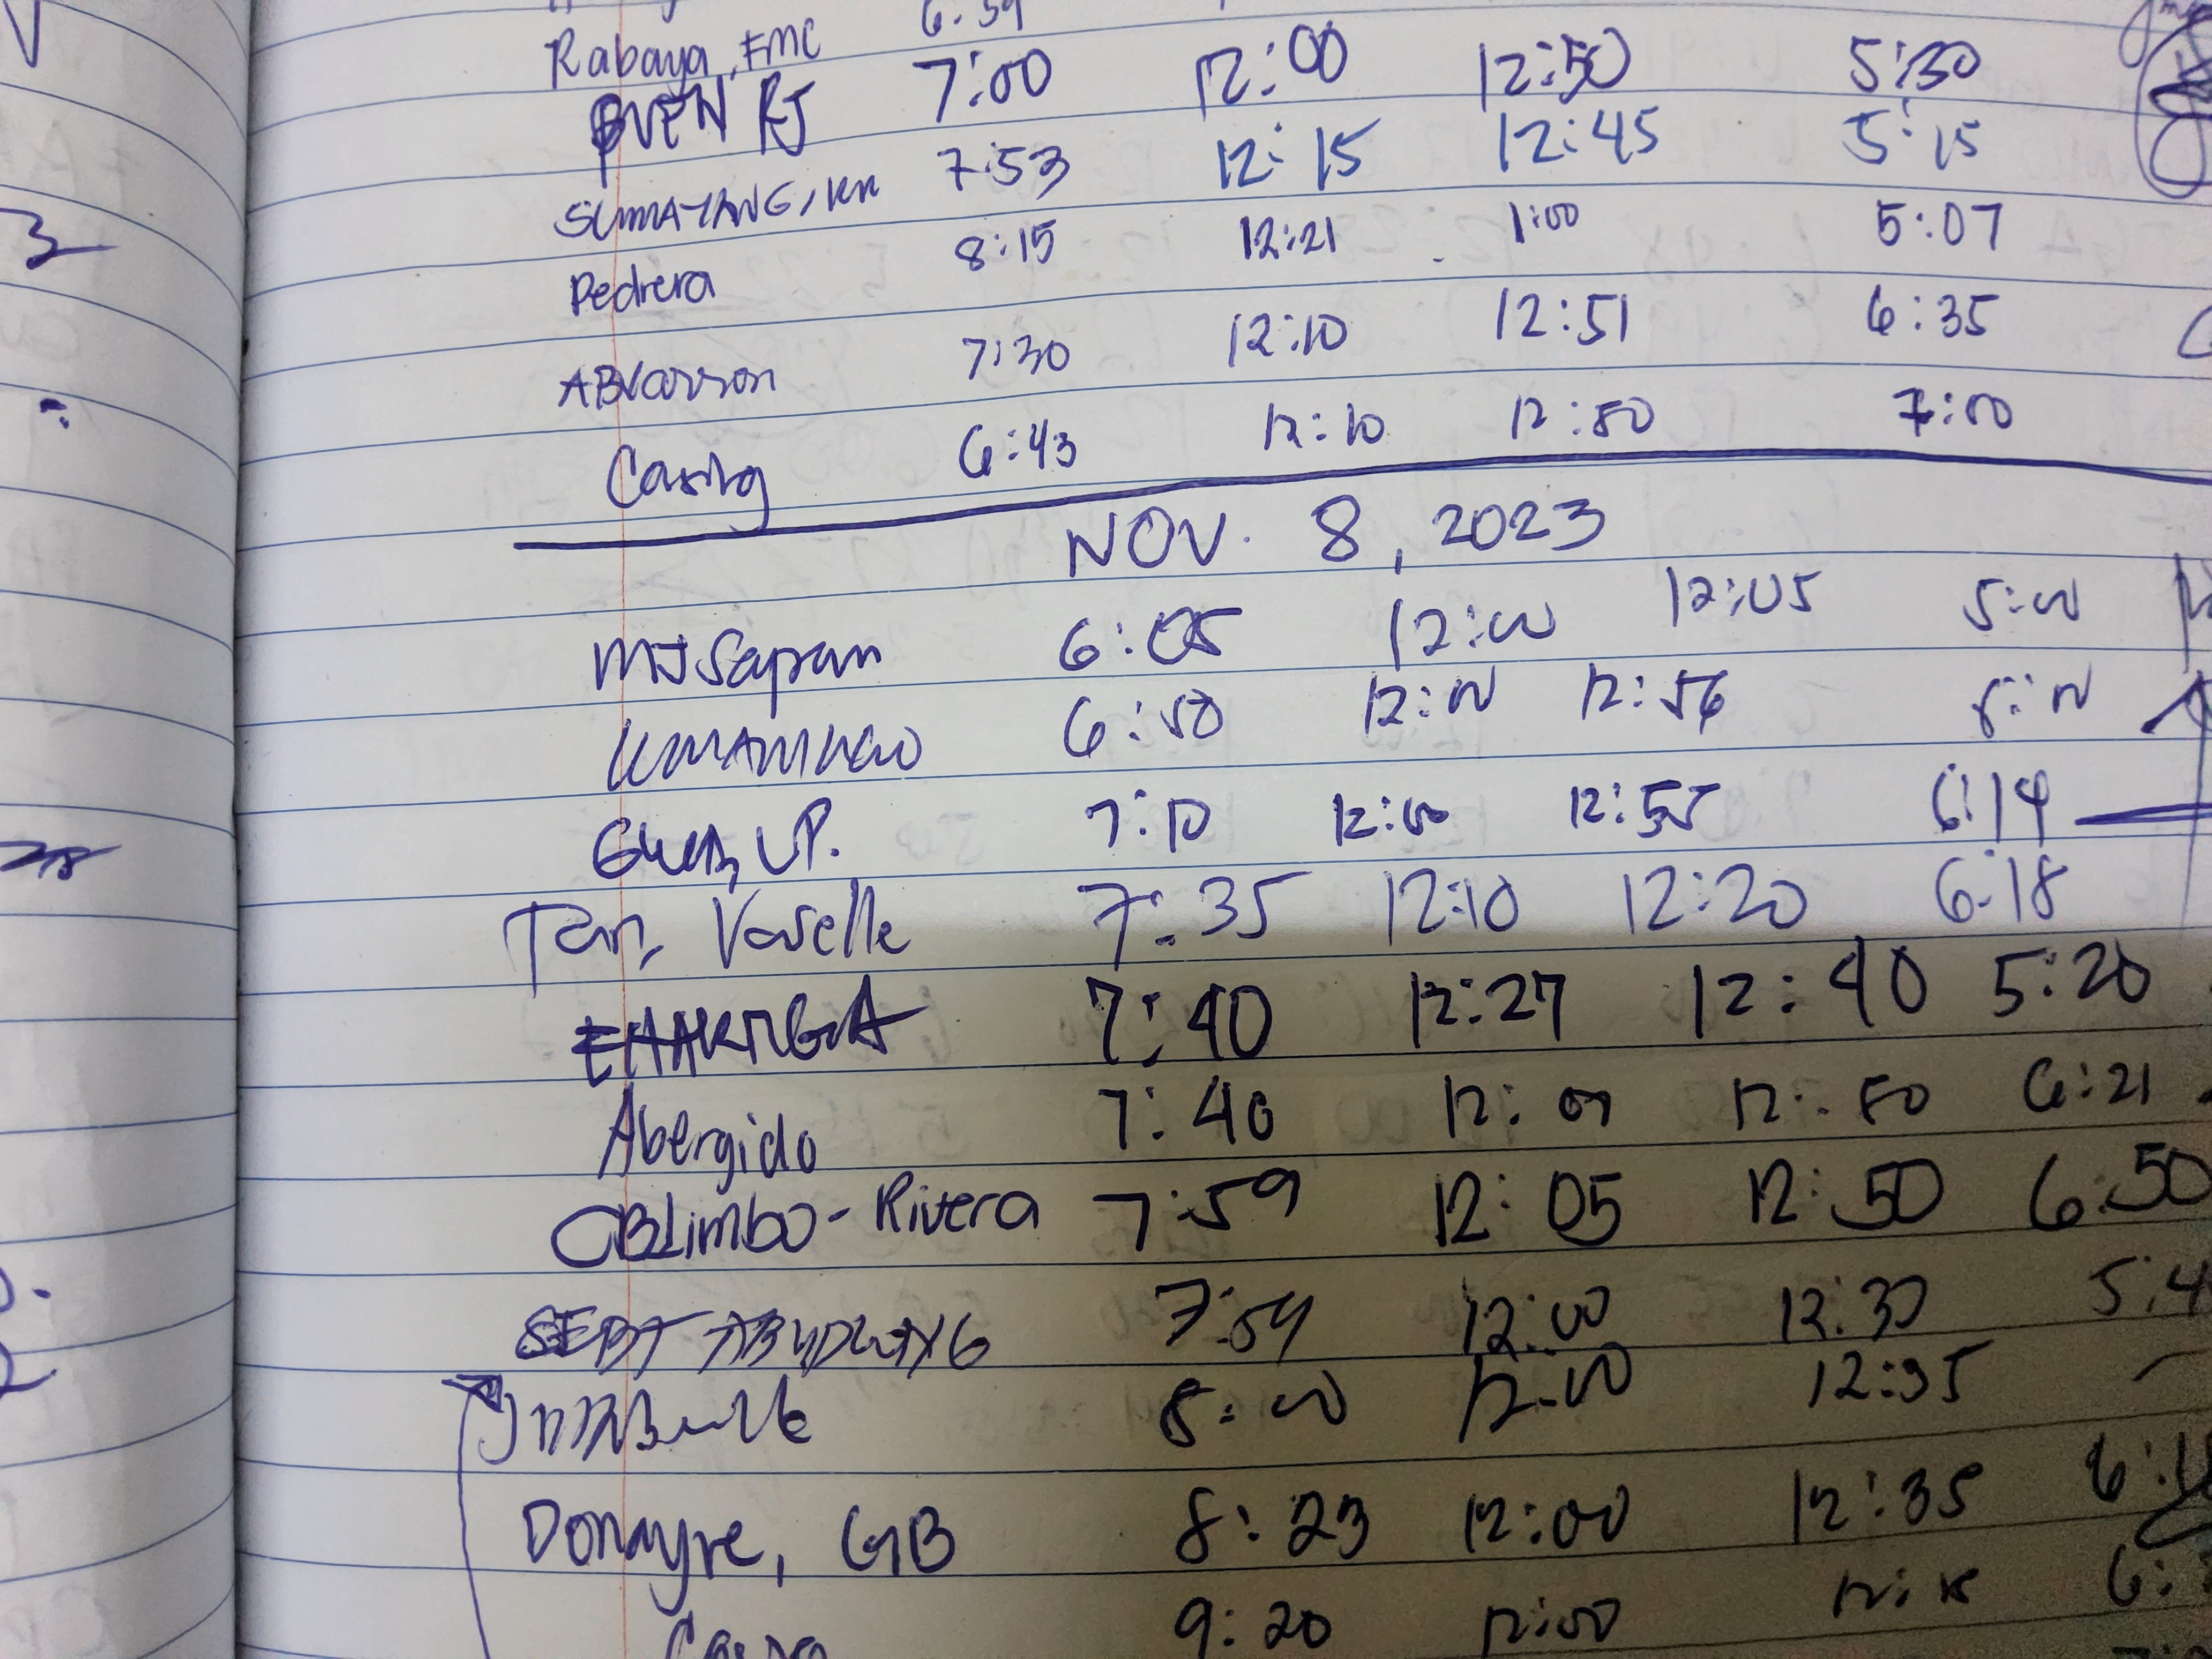 Rabaya, FMC 6:59
BUEN RJ 7:00 12:00 12:50 5:30
SUMAYANG, KM 7:53 12:15 12:45 5:15
Pedrera 8:15 12:21 1:00 5:07
7:30 12:10 12:51 6:35
Casing 6:43 12:10 12:50 7:00
NOV. 8, 2023
MJSapan 6:05 12:00 12:05 5:00
6:50 12:00 12:56 5:00
7:10 12:00 12:55 6:14
Tan, Voselle 7:35 12:10 12:20 6:18
7:40 12:27 12:40 5:20
Abergido 7:40 12:01 12:50 6:21
CBLimbo-Rivera 7:59 12:05 12:50 6:50
7:54 12:00 12:30 5:4
8:00 12:00 12:35
Donayre, GB 8:23 12:00 12:35
9:20 12:00